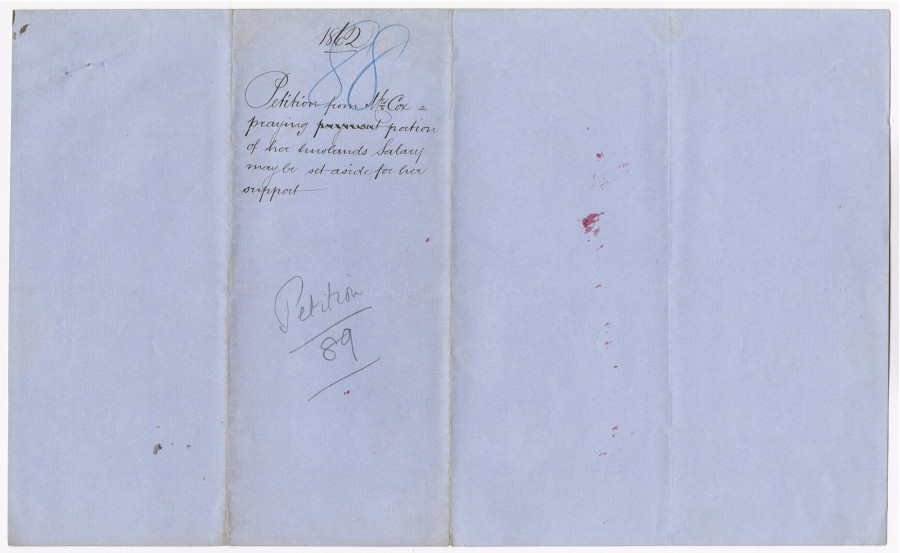 1862
88
Petition from Mrs Cox a
praying payment portion
of her husbands Salary
may be set aside for her
support
Petition
89